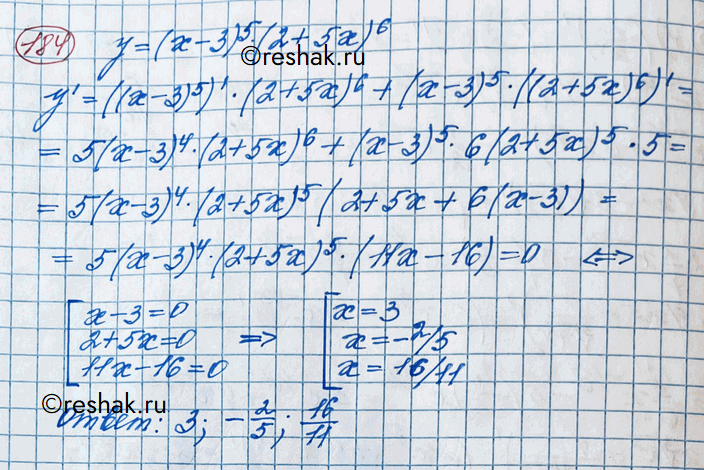 184 y = (x-3)^5·(2+5x)^6
©reshak.ru
y' = ((x-3)^5)'·(2+5x)^6 + (x-3)^5·((2+5x)^6)' =
= 5(x-3)^4·(2+5x)^6 + (x-3)^5·6(2+5x)^5·5 =
= 5(x-3)^4·(2+5x)^5(2+5x+6(x-3)) =
= 5(x-3)^4·(2+5x)^5·(11x-16)=0 ⟺
[x-3=0 [x=3
2+5x=0 ⟹ x=-2/5
11x-16=0 x=16/11
©reshak.ru
Ответ: 3; -2/5; 16/11